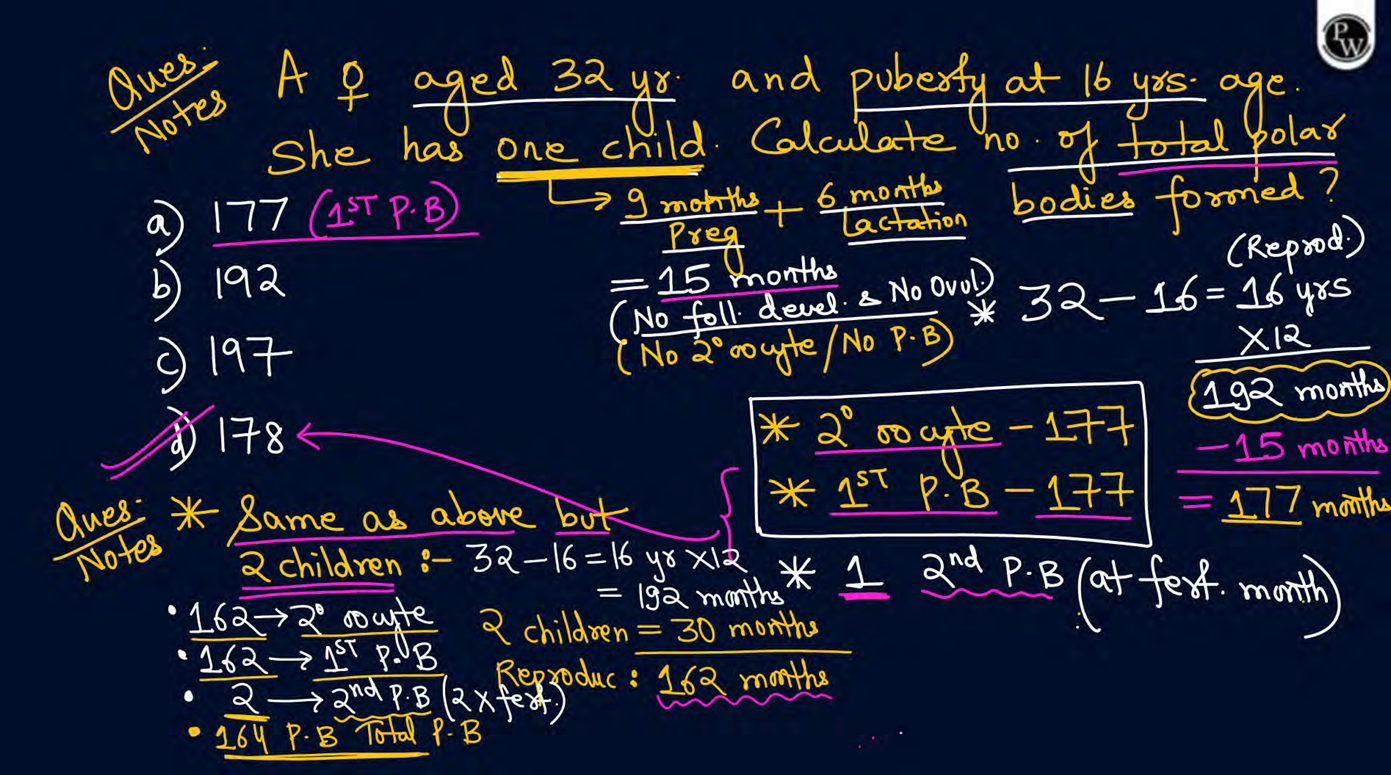 PW
Ques.
Notes
A ♀ aged 32 yr. and puberty at 16 yrs. age.
She has one child. Calculate no. of total polar
bodies formed?
→ 9 months + 6 months
Preg Lactation
= 15 months
(No foll. devel. & No Ovul.)
(No 2° oocyte / No P.B)
a) 177 (1ST P.B)
b) 192
c) 197
d) 178
(Reprod.)
* 32 - 16 = 16 yrs
X12
192 months
- 15 months
= 177 months
* 2° oocyte - 177
* 1ST P.B - 177
* 1 2nd P.B (at fert. month)
Ques:
Notes
* Same as above but
2 children :- 32 - 16 = 16 yr X12
= 192 months
2 children = 30 months
Reproduc : 162 months
• 162 → 2° oocyte
• 162 → 1ST P.B
• 2 → 2nd P.B (2 x fert.)
• 164 P.B Total P.B